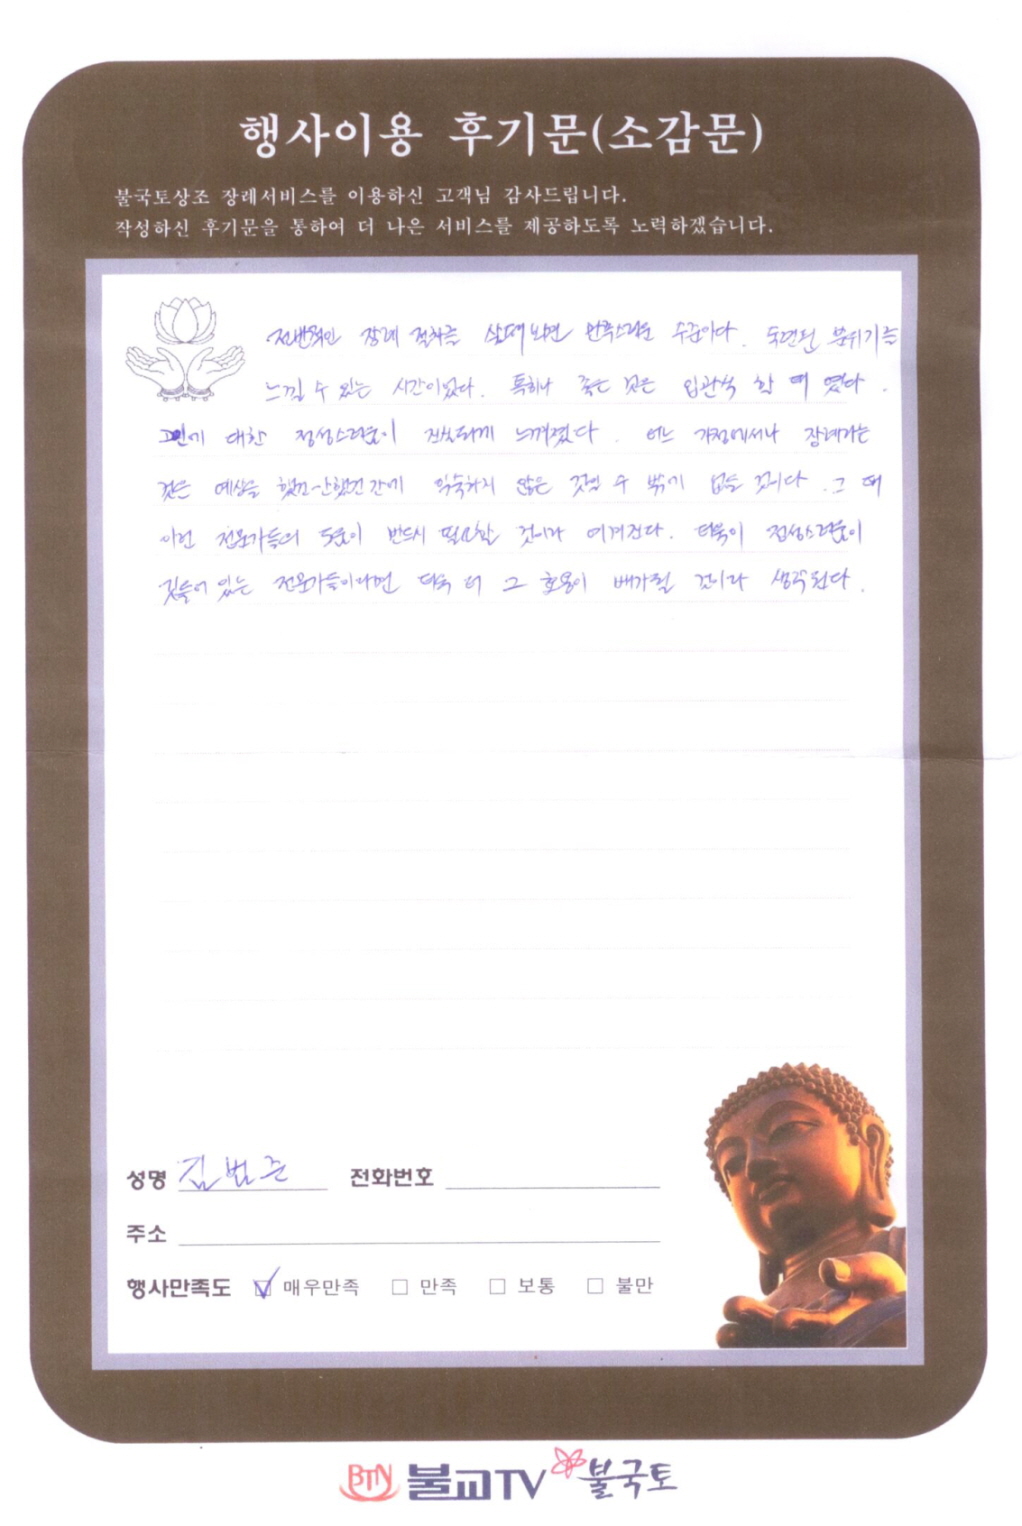 행사이용 후기문(소감문)
불국토상조 장례서비스를 이용하신 고객님 감사드립니다.
작성하신 후기문을 통하여 더 나은 서비스를 제공하도록 노력하겠습니다.
전반적인 장례 절차를 살펴보면 만족스러운 수준이다. 숙련된 분위기를
느낄 수 있는 시간이었다. 특히나 좋은 것은 입관식 할 때 였다.
고인에 대한 정성스러움이 진실되게 느껴졌다. 어느 가정에서나 장례라는
것은 예상을 했건-안했건 간에 익숙하지 않은 것일 수 밖에 없을 것이다. 그 때
이런 전문가들의 도움이 반드시 필요할 것이라 여겨진다. 더욱이 정성스러움이
깃들어 있는 전문가들이라면 더욱 더 그 효용이 배가될 것이라 생각된다.
성명 김범준 전화번호
주소
행사만족도 매우만족 만족 보통 불만
BTN 불교TV 불국토